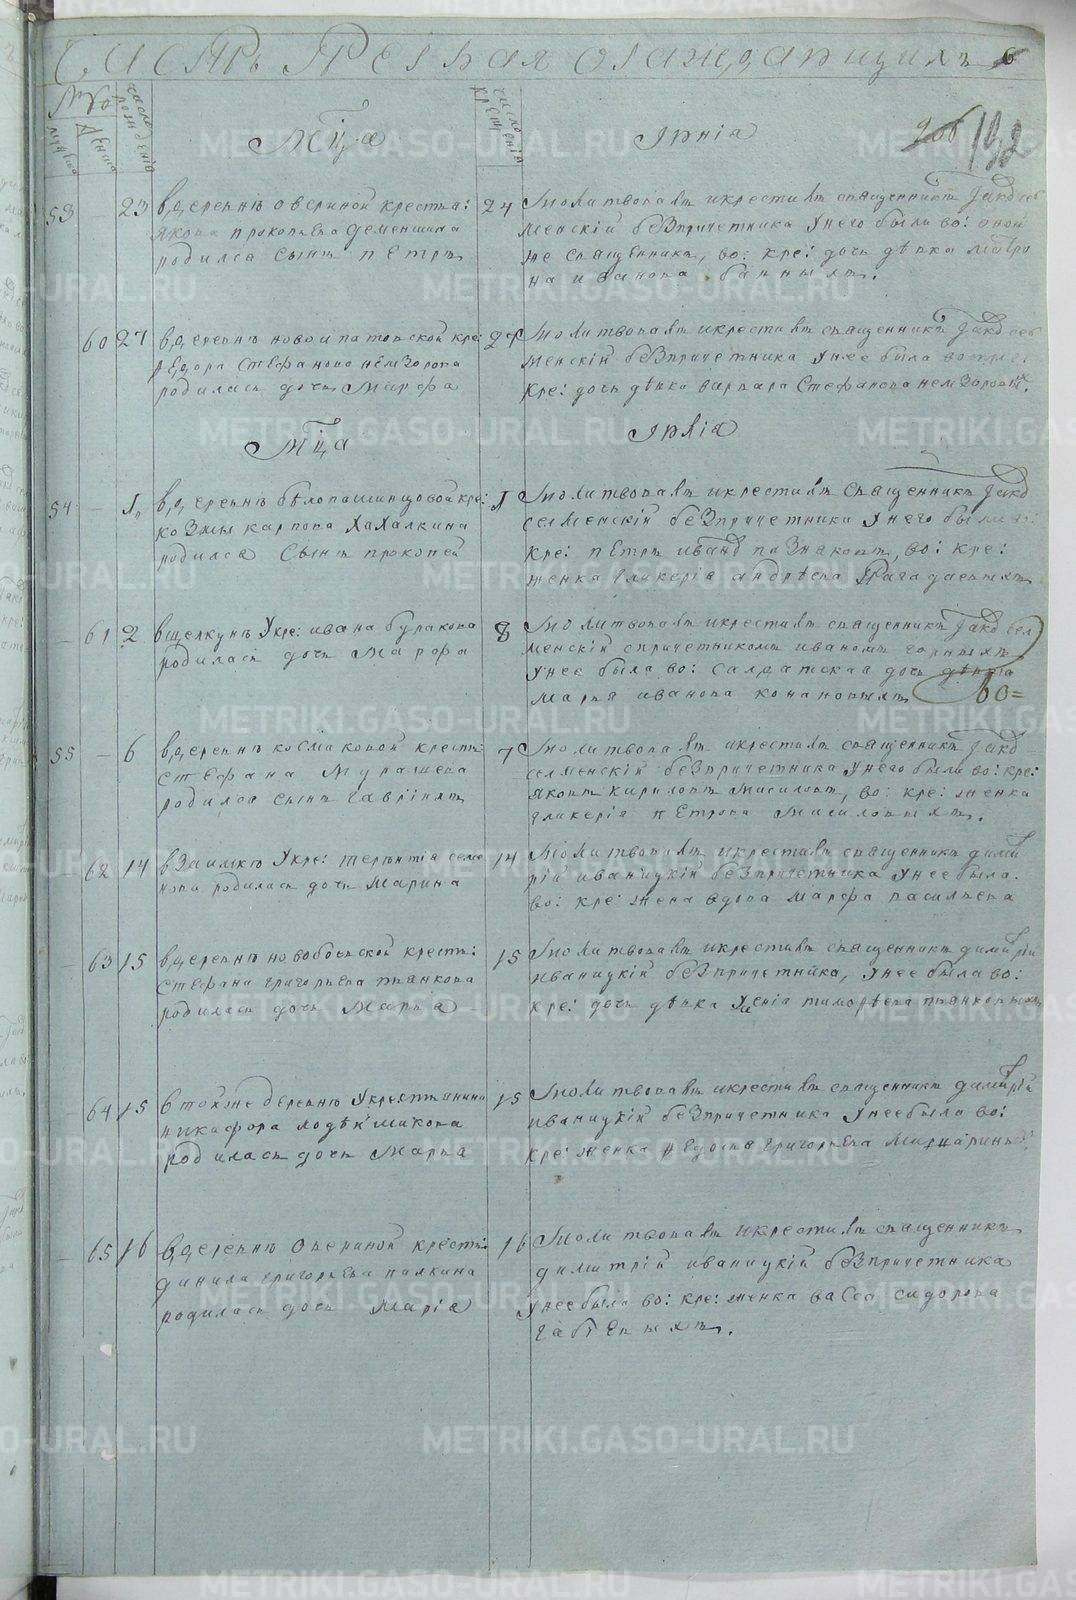 Часть первая о раждающихся
6
№
мужска
женска
число рождения
число крещения
Мца Іюнiа
132
53 — 23 в деревнѣ овсяной крестья:
якова прокопьева деменшина
родился сынъ петръ
24 Молитвовалъ икрестилъ священникъ Іаковъ се
менскій безпричетника унего были во: оной
же священникъ, во: кре: дочь дѣвка матро
на иванова банныхъ.
60 27 в деревнѣ новоипатовской кре:
ѳедора стефанова немзорова
родилась дочь Марфа
27 Молитвовалъ икрестилъ священникъ Іаковъ се
менскій безпричетника унее была
кре: дочь дѣвка варвара Стефанова немзоровыхъ.
Мца Іюліа
54 — 1 в деревнѣ бѣлопашинцовой кре:
козмы карпова хахалкина
родился Сынъ прокопей
1 Молитвовалъ икрестилъ священникъ Іаковъ
семенскій безпричетника унего были в:
кре: петръ иванов пазнаковъ, во: кре:
женка гликеріа андрѣева
— 61 2 вщелкунѣ укре: ивана булакова
родилась дочь Марфа
8 Молитвовалъ икрестилъ священникъ Іаковъ сем
менскій спричетникомъ иваномъ горныхъ
унее была во: салдатская дочь дѣвка
марья иванова конановыхъ
во=
55 — 6 в деревнѣ космаковой крестья:
стефана Мурашева
родился сынъ гавріилъ
7 Молитвовалъ икрестилъ священникъ Іаков
семенскій безпричетника унего были во: кре:
яковъ кириловъ Масиловъ, во: кре: женка
гликеріа петрова Масиловыхъ.
62 14 взаимкѣ укре: терентіа семе
нова родилась дочь марина
14 Молитвовалъ икрестилъ священникъ дими
трій иваницкій безпричетника унее была
во: кре: жена вдова марфа васильева
— 63 15 в деревнѣ новобоевской крестья:
стефана григорьева пьянкова
родилась дочь Марья
15 Молитвовалъ икрестилъ священникъ димитрій
иваницкій безпричетника, унее была во:
кре: дочь дѣвка ксеніа тимофѣева пьянковыхъ
— 64 15 втойже деревнѣ укрестьянина
никифора
родилась дочь Марья
15 Молитвовалъ икрестилъ священникъ димитрій
иваницкій безпричетника унее была во:
кре: женка ѳедосья григорьева
— 65 16 в деревнѣ Овсяной крестья:
данила григорьева палкина
родилась дочь Маріа
16 Молитвовалъ икрестилъ священникъ
димитрій иваницкій безпричетника
унее была во: кре: женка васса сидорова
METRIKI.GASO-URAL.RU